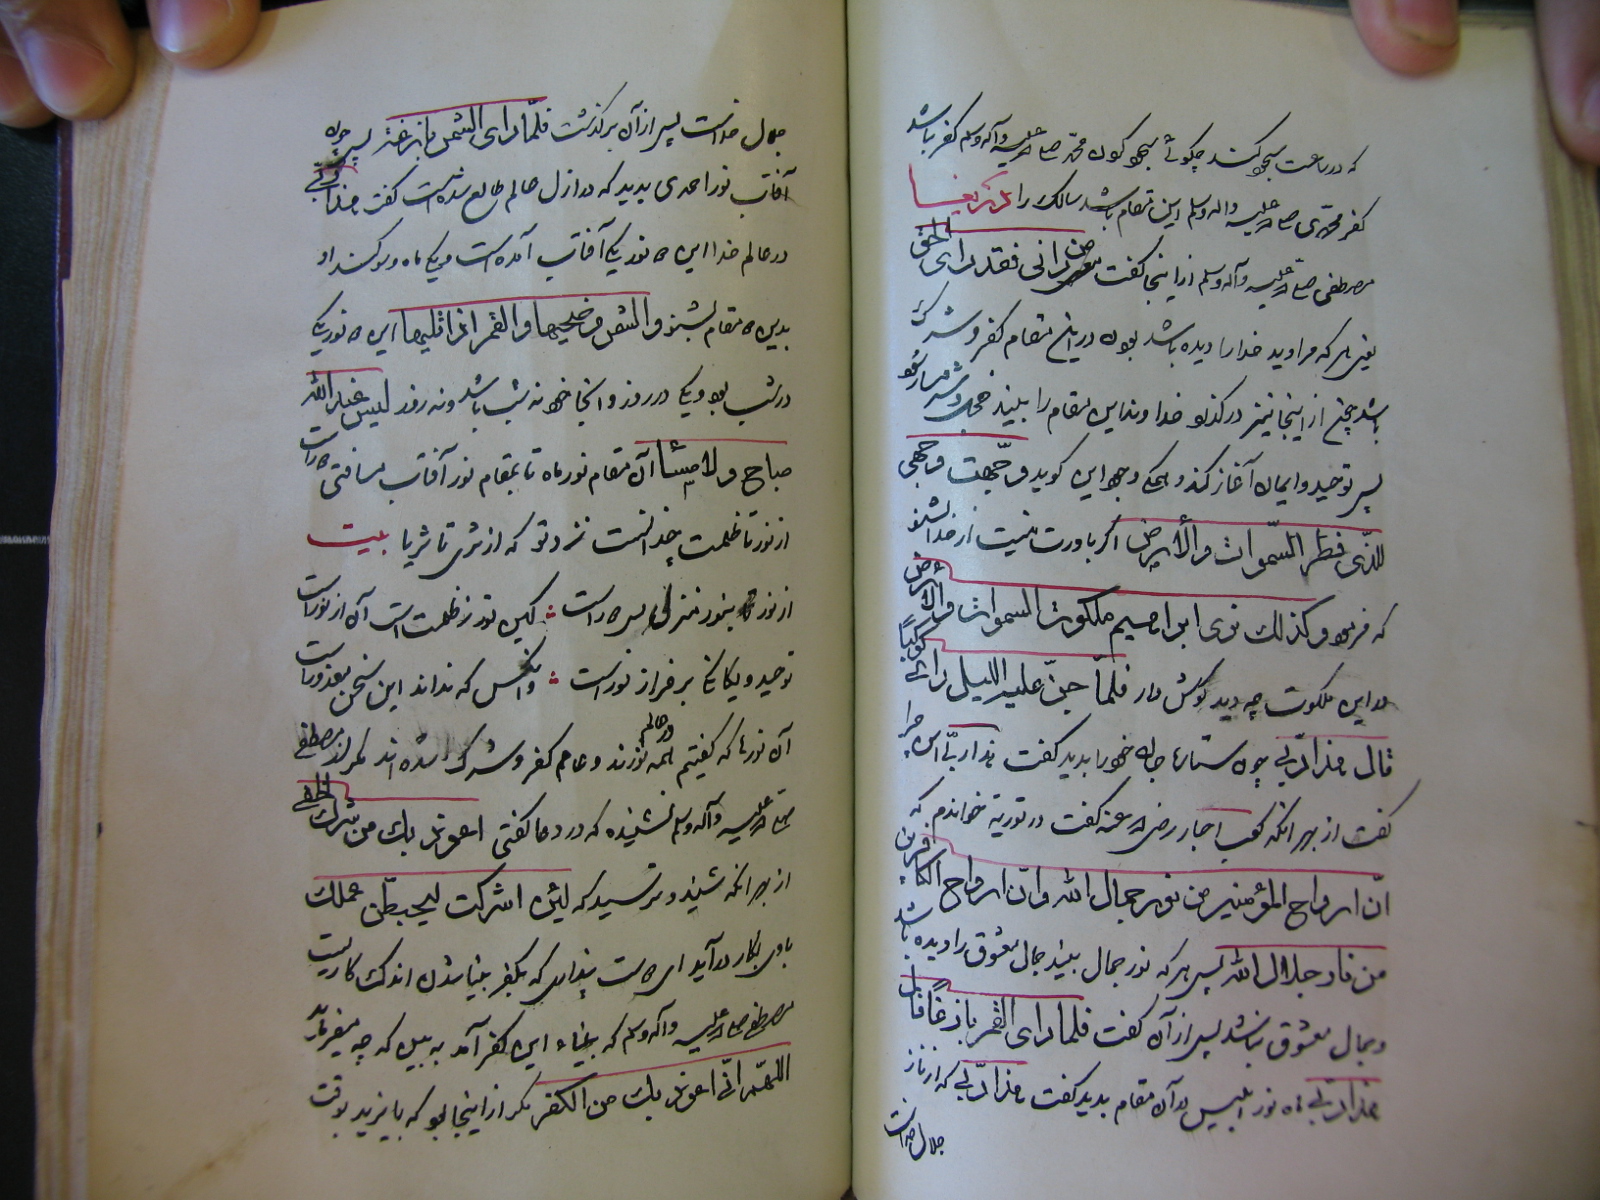 که در ساعت سجود کنند چگونه سجود کردن محمد صلی الله علیه وآله وسلم کفر باشد
کفر محمدی صلی الله علیه واله وسلم این مقام باشد سالک را
مصطفی صلی الله علیه وآله وسلم از اینجا گفت من رانی فقد رای الحق
یعنی هر که مرا دید خدا را دیده باشد بودن در این مقام کفر و شرک
باشد چون از اینجا نیز درگذرد خدا وندا این مقام را بیند خجل
پس توحید و ایمان آغاز کند و همگی وجود این گوید وجّهت وجهی
للذی فطر السّموات والأرض اگر باورت نیست از خدا بشنو
که فرمود وکذلك نری ابراهیم ملکوت السموات والأرض
در این ملکوت چه دید گوش دار فلمّا جنّ علیه اللیل رای کوکباً
قال هذا ربّی چون ستارهٔ جان خود را بدید گفت هذا ربّی این چرا
گفت از بهر آنکه کعب احبار رضی الله عنه گفت در توریة خواندم که
انّ ارواح المؤمنین من نور جمال الله وانّ ارواح الکافرین
من نار جلال الله پس هر که نور جمال بیند جمال معشوق را دیده باشد
وجمال معشوق باشد پس از آن گفت فلما رای القمر بازغاً قال
هذا ربّی ماه نور ابلیس در آن مقام بدید گفت هذا ربّی که از نار
جلال خداست
جمال خداست پس از آن برگذشت فلمّا رای الشمس بازغة پس چون
آفتاب نور احمدی بدید که در ازل عالم طالع شده است گفت هذا ربّی
در عالم خدا این دو نور یکی آفتاب آمده است و یکی ماه و سوگند او
بدین دو مقام بشنو والشمس وضحیها والقمر اذا تلیها این دو نور یکی
در شب بود و یکی در روز و آنجا خود نه شب باشد ونه روز لیس عند الله
صباح ولا مساء آن مقام نور ماه تا بمقام نور آفتاب مسافتی دراست
از نور تا ظلمت چندانست نزد تو که از ثری تا ثریا بیت
از نور بنور منزلی بس دراست لکین نور ز ظلمت است آن از نور است
توحید و یگانگی بر فراز نور است وانکس که نداند این سخن معذور است
آن نورها که گفتیم همه نورند در عالم و عالم کفر و شرک شده اند مگر از مصطفی
صلی الله علیه وآله وسلم نشنیده که در دعا گفتی اعوذ بك من شرك الخفی
از بهر آنکه شنید و ترسید که لئن اشرکت لیحبطنّ عملك
با وی بکار درآید ای دوست پنداری که بکفر بینا شدن اندک کاریست
مصطفی صلی الله علیه وآله وسلم که بیناء این کفر آمد به بین که چه میفرماید
اللهمّ انّی اعوذ بك من الکفر مگر از اینجا بود که بایزید بوقت